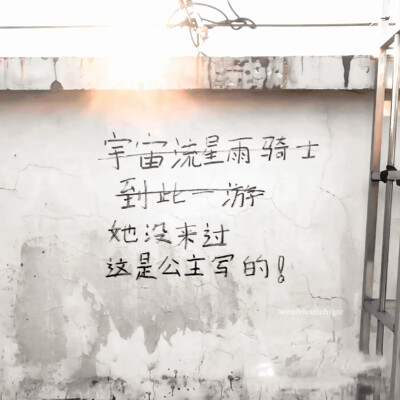 宇宙流星雨骑士
到此一游
她没来过
这是公主写的！